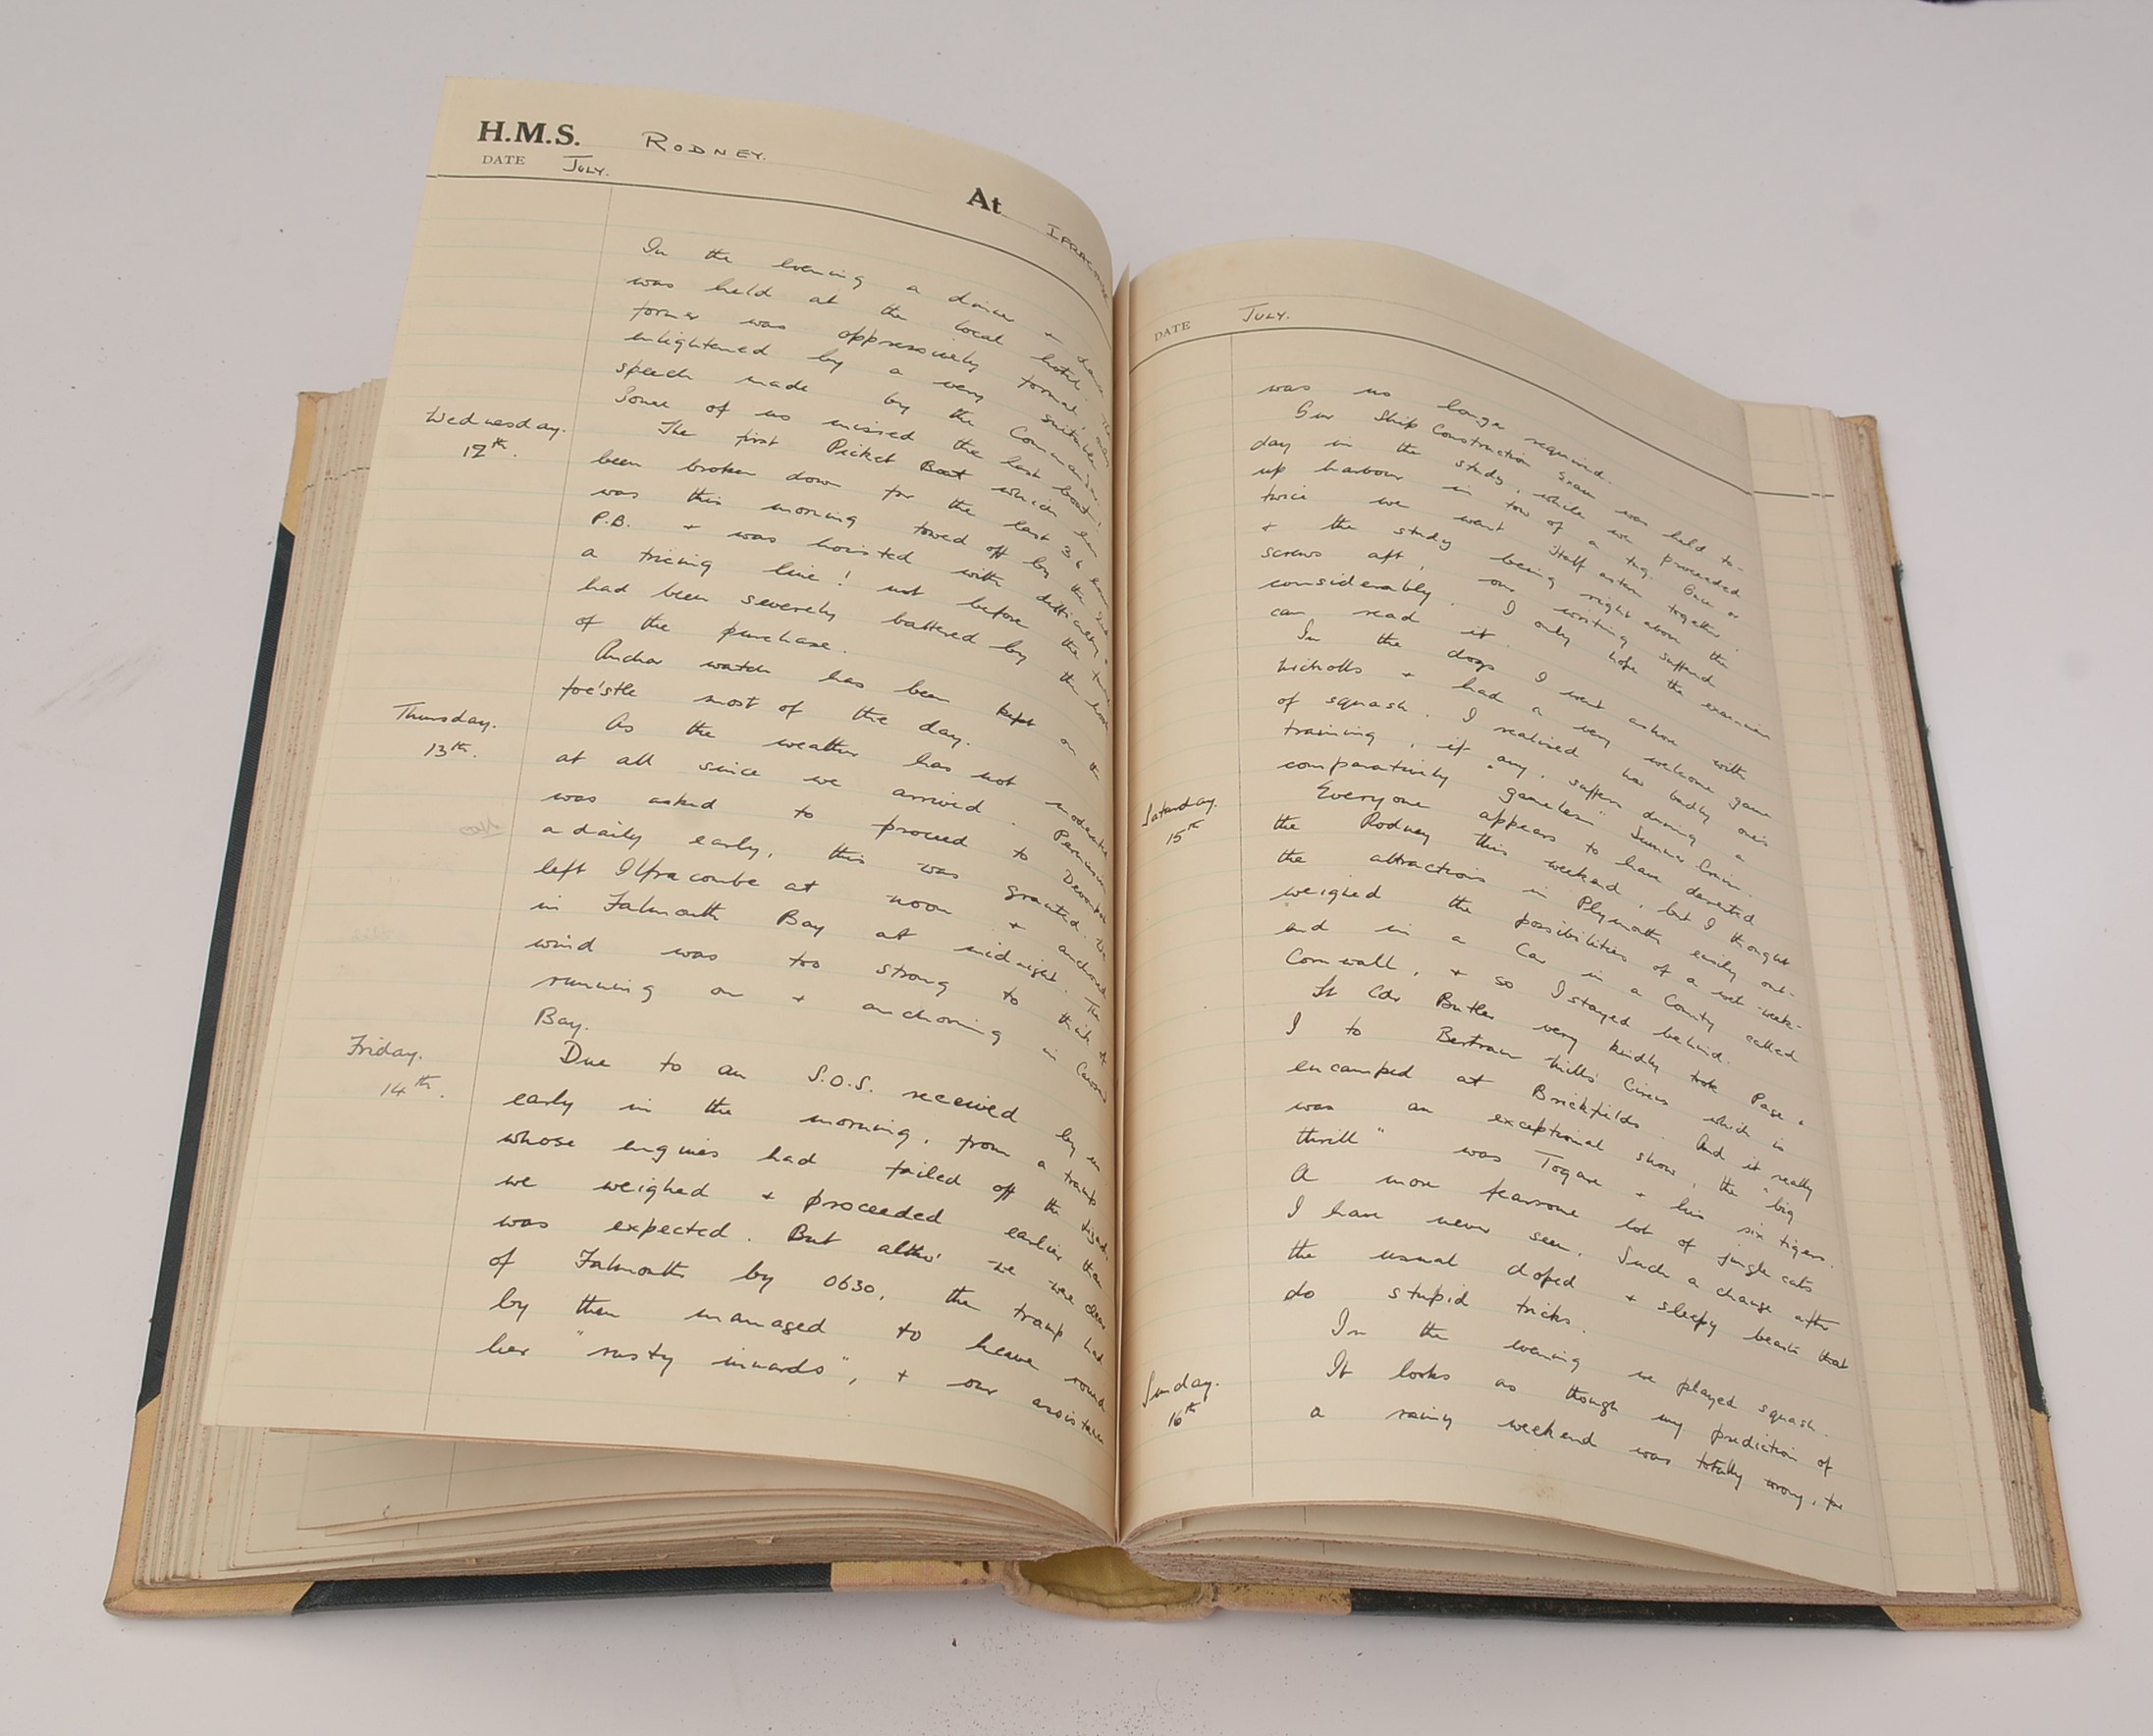 H.M.S. RODNEY.
DATE JULY.
At
In the evening a dinner
was held at the local hotel.
former was oppressively formal,
enlightened by a very suitable
speech made by the Commander.
Some of us missed the last boat!
Wednesday.
12th.
The first Picket Boat which has
been broken down for the last 36
was this morning towed off by the
P.B. + was hoisted with difficulty.
a tricing line! not before the
had been severely battered by the
of the purchase.
Anchor watch has been kept on the
foc'stle most of the day.
Thursday.
13th.
As the weather has not moderated
at all since we arrived. Permission
was asked to proceed to Devonport
a daily early, this was granted. We
left Ilfracombe at noon + anchored
in Falmouth Bay at midnight. The
wind was too strong to think of
running on + anchoring in
Bay.
Friday.
14th.
Due to an S.O.S. received by us
early in the morning, from a tramp
whose engines had failed off the Lizard,
we weighed + proceeded earlier than
was expected. But altho' we were clear
of Falmouth by 0630, the tramp had
by then managed to heave round
her "rusty inwards", + our assistance
DATE JULY.
was no longer required.
Our Ship Construction exam was held to-
day in the study, while we proceeded
up harbour in tow of a tug. Once or
twice we went half astern together,
+ the study being right above the
screws aft, our writing suffered
considerably. I only hope the examiner
can read it.
In the dogs I went ashore with
Nicholls + had a very welcome game
of squash. I realised how badly one's
training, if any, suffers during a
comparatively "gameless" Summer Cruise.
Saturday.
15th
Everyone appears to have deserted
the Rodney this weekend, but I thought
the attractions in Plymouth easily out-
weighed the possibilities of a wet week-
end in a Car in a County called
Cornwall, + so I stayed behind.
Lt Cdr Butler very kindly took Page +
I to Bertram Mills' Circus which is
encamped at Brickfields. And it really
was an exceptional show, the "big
thrill" was Togare + his six tigers.
A more fearsome lot of jungle cats
I have never seen. Such a change after
the usual doped + sleepy beasts that
do stupid tricks.
In the evening we played squash.
Sunday.
16th
It looks as though my prediction of
a rainy weekend was totally wrong, for